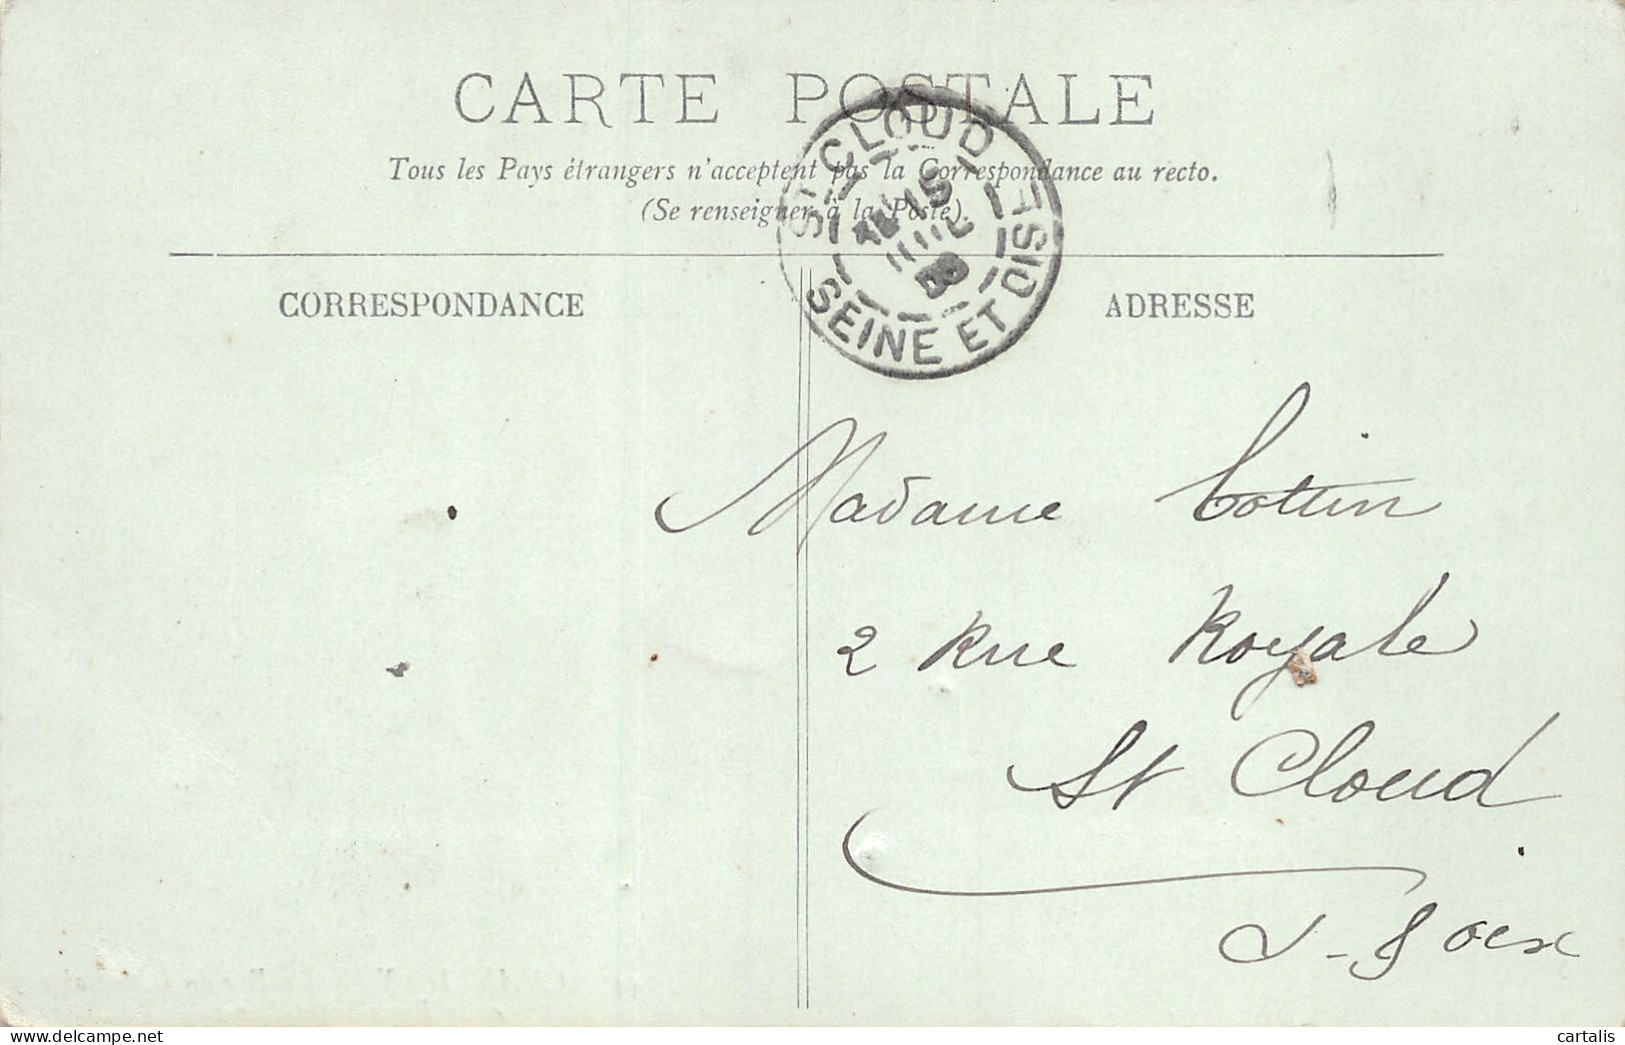 CARTE POSTALE
Tous les Pays étrangers n'acceptent pas la Correspondance au recto.
(Se renseigner à la Poste).
ST CLOUD
SEINE ET OISE
CORRESPONDANCE
ADRESSE
Madame Cottin
2 Rue Royale
St Cloud
S-&
cartalis